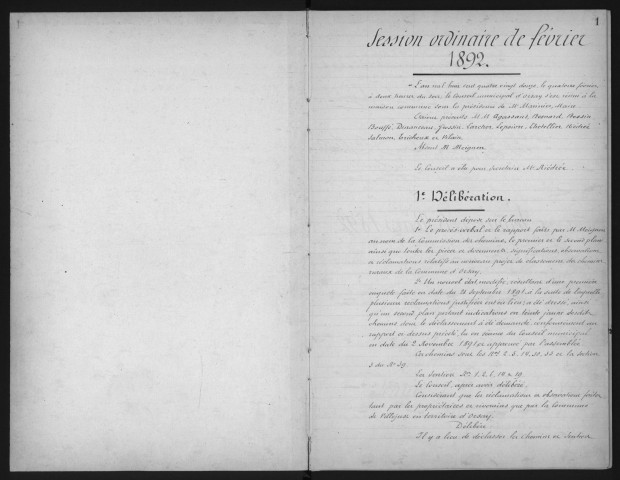 1
Session ordinaire de février
1892.
L'an mil huit cent quatre vingt douze, le quatorze février
à deux heures du soir, le Conseil municipal d'Orsay s'est réuni à la
maison commune sous la présidence de M. Maire
Étaient présents M. M.
Larcher
Salmon, et
Absent M. Meignen
Le Conseil a élu pour secrétaire M.
1e Délibération.
Le président dépose sur le bureau
1º Le procès-verbal et le rapport faits par M. Meignen
au nom de la Commission des chemins, le premier et le second plans
ainsi que toutes les pièces et documents, significations, observations
et réclamations relatifs au projet de classement des chemins
ruraux de la Commune d'Orsay.
2º Un nouvel état modifié, résultant d'une première
enquête faite en date du Septembre 1891, à la suite de laquelle
plusieurs réclamations justifiées ont eu lieu, a été dressé, ainsi
qu'un second plan portant indications en teinte jaune desdits
chemins dont le déclassement a été demandé, conformément au
rapport ci-dessus précité, lu en séance du Conseil municipal
en date du 2 Novembre 1891 et approuvé par l'assemblée.
Ces chemins sous les Nos 2. 5.
du No 39
Les Sentiers Nos
Le Conseil, après avoir délibéré
Considérant que les réclamations et observations faites
tant par les propriétaires et riverains que par la Commune
de Villejust en territoire d'Orsay,
Délibère
Il y a lieu de déclasser les chemins et sentiers